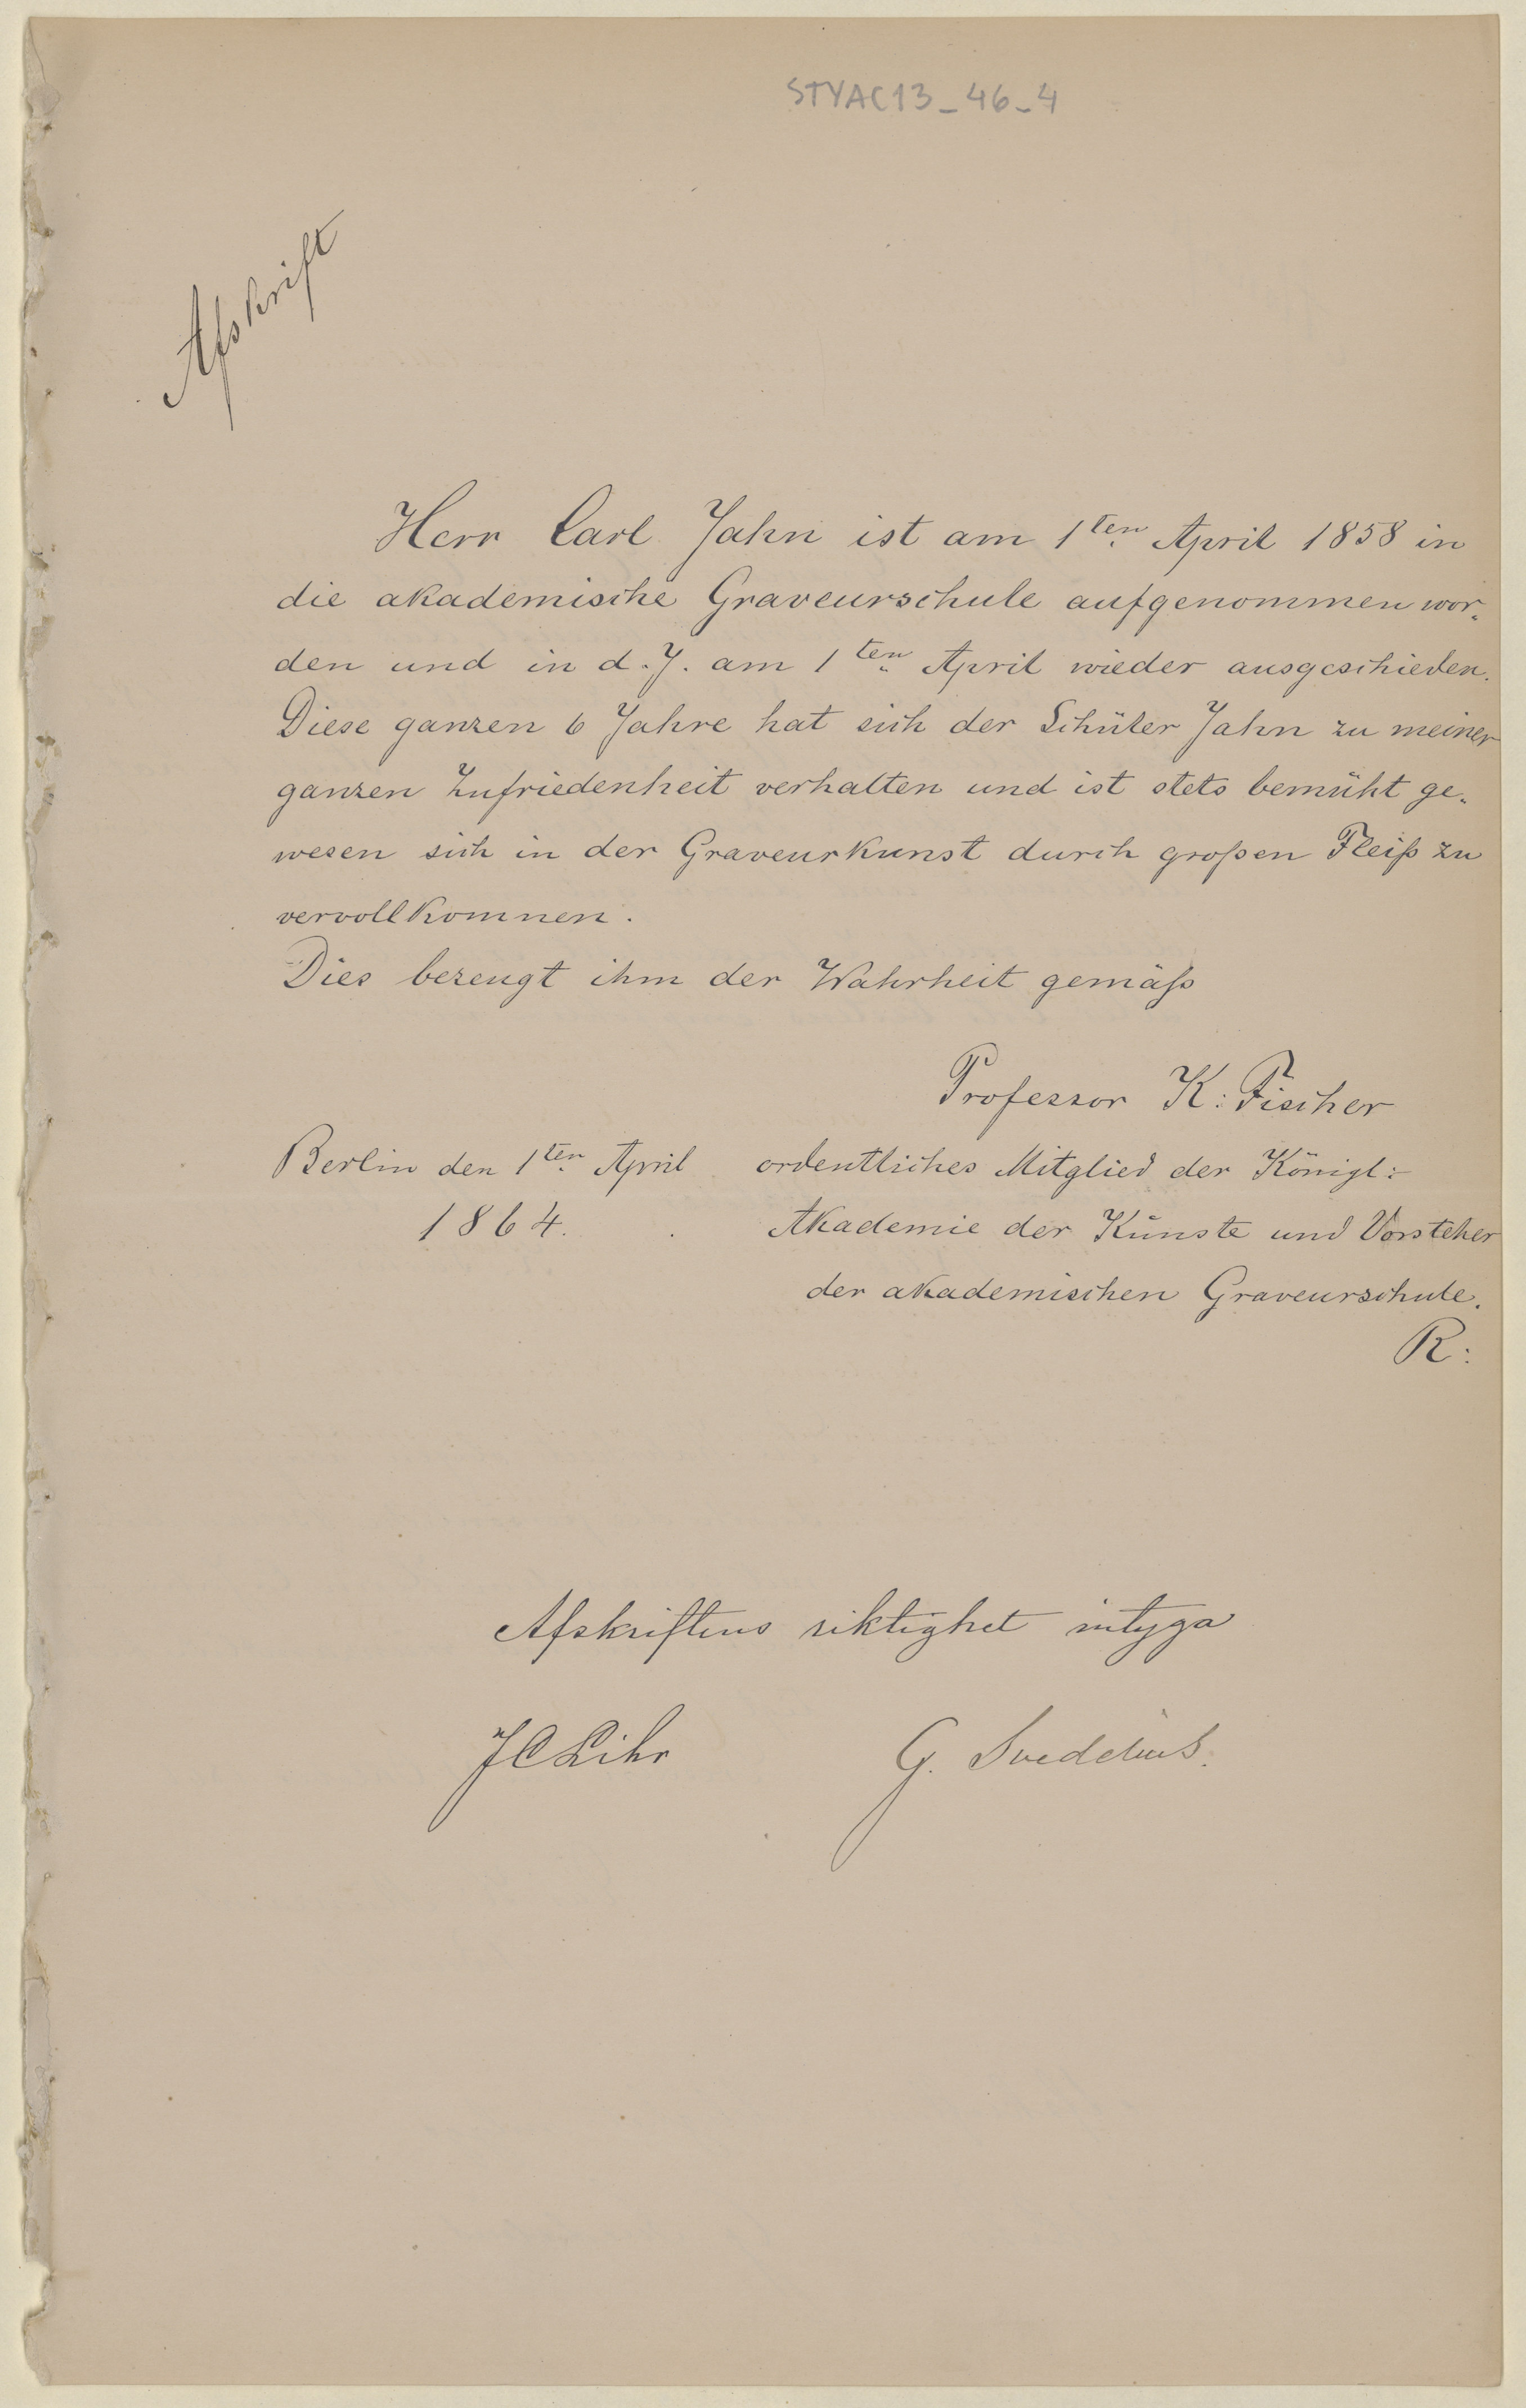 STYAC13_46_4
Afskrift
Herr Carl Jahn ist am 1ten April 1858 in
die akademische Graveurschule aufgenommen wor-
den und in d. J. am 1ten April wieder ausgeschieden.
Diese ganzen 6 Jahre hat sich der Schüler Jahn zu meiner
ganzen Zufriedenheit verhalten und ist stets bemüht ge-
wesen sich in der Graveurkunst durch großen Fleiß zu
vervollkomnen.
Dies bezeugt ihm der Wahrheit gemäß
Professor K: Fischer
Berlin den 1ten April
1864.
ordentliches Mitglied der Königl:
Akademie der Künste und Vorsteher
der akademischen Graveurschule.
R:
Afskriftens riktighet intyga
J C
G. Svedelius.